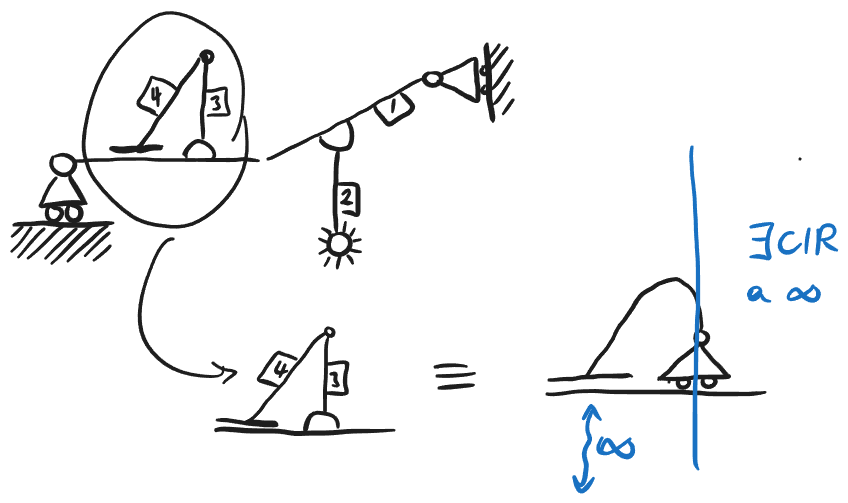 4
3
1
2
4
3
≡
∃CIR
a ∞
∞